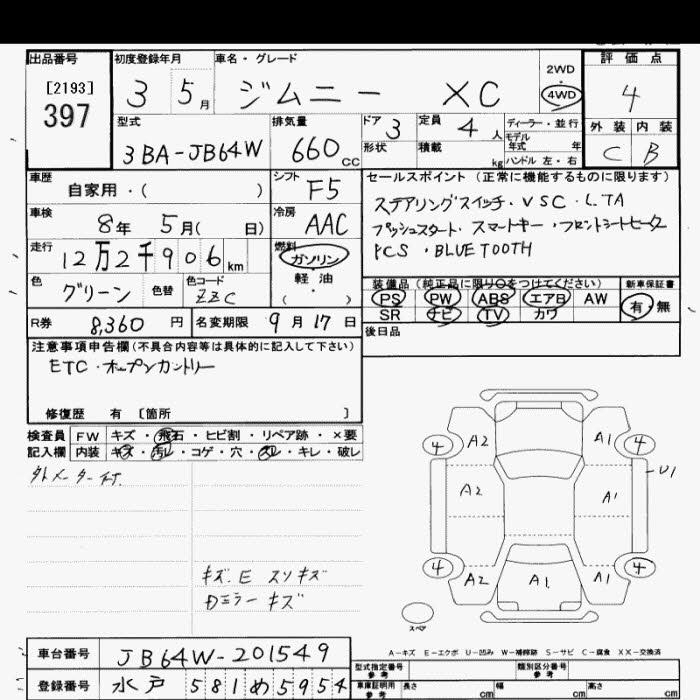 出品番号
[2193]
397
初度登録年月
3 5月
車名・グレード
ジムニー XC
2WD
・
4WD
評価点
4
外装 内装
C B
型式
3BA-JB64W
排気量
660cc
ドア 3
形状
定員 4人
積載 kg
ディーラー・並行
モデル
年式 年
ハンドル 左・右
車歴
自家用・( )
シフト
F5
車検
8年 5月( 日)
冷房
AAC
走行
12万2千906km
燃料
ガソリン
軽油
( )
色
グリーン
色替
色コード
ZZC
R券 8,360円
名変期限 9月17日
セールスポイント (正常に機能するものに限ります)
ステアリングスイッチ・VSC・LTA
プッシュスタート・スマートキー・フロントシートヒータ
PCS・BLUETOOTH
装備品 (純正品に限り○をつけてください)
PS PW ABS エアB AW
SR ナビ TV カワ
新車保証書
有・無
後日品
注意事項申告欄(不具合内容等は具体的に記入して下さい)
ETC・オープンカントリー
修復歴 有 〔箇所 〕
検査員
記入欄
FW キズ・飛石・ヒビ割・リペア跡・×要
内装 キズ・汚レ・コゲ・穴・スレ・キレ・破レ
外メーター付
キズ.E スリキズ
Dミラーキズ
4 A2 A1 4
A2 A1 U1
4 A2 A1 A1 4
スペア
A-キズ E-エクボ U-凹み W-補修跡 S-サビ C-腐食 XX-交換済
車台番号 JB64W-201549
登録番号 水戸 581め5954
型式指定番号
参考
類別区分番号
参考
車庫証明用
参考
長さ cm 幅 cm 高さ cm